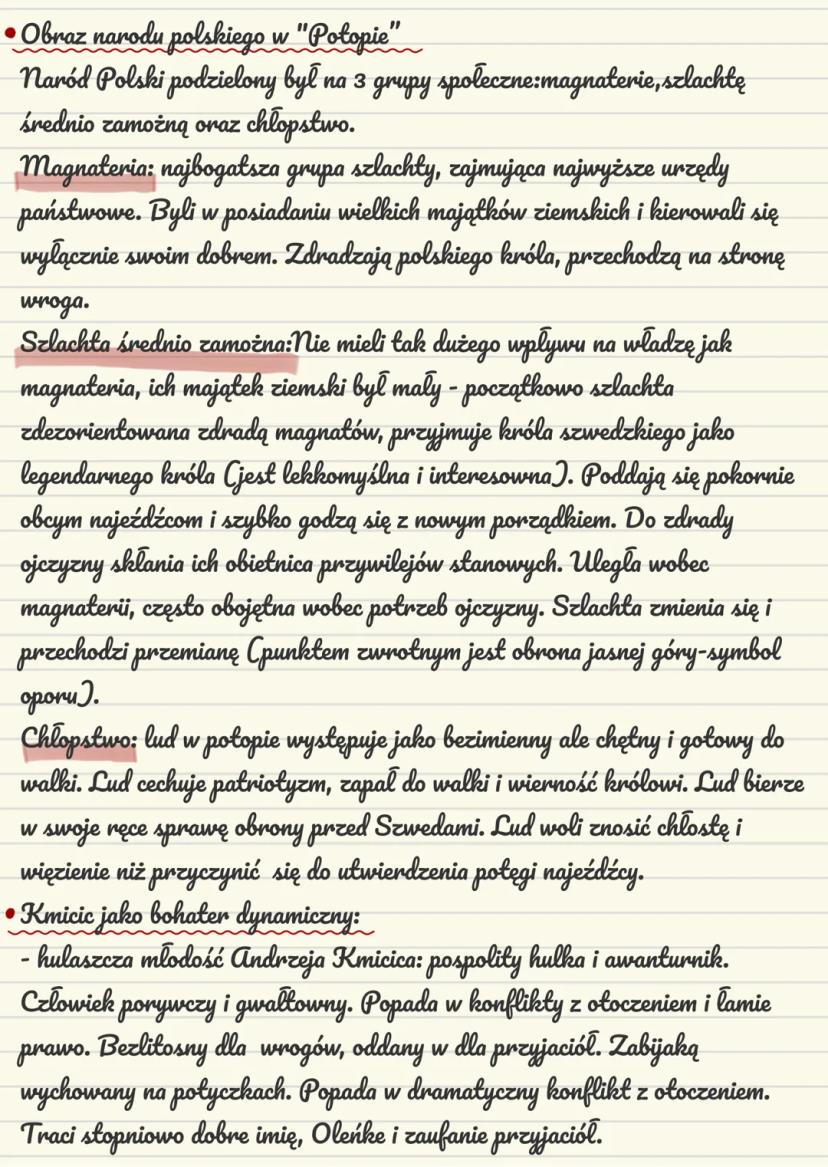 Obraz narodu polskiego w "Potopie"
Naród Polski podzielony był na 3 grupy społeczne:magnaterie,szlachtę
średnio zamożną oraz chłopstwo.
Magnateria: najbogatsza grupa szlachty, zajmująca najwyższe urzędy
państwowe. Byli w posiadaniu wielkich majątków ziemskich i kierowali się
wyłącznie swoim dobrem. Zdradzają polskiego króla, przechodzą na stronę
wroga.
Szlachta średnio zamożna:Nie mieli tak dużego wpływu na władzę jak
magnateria, ich majątek ziemski był mały - początkowo szlachta
zdezorientowana zdradą magnatów, przyjmuje króla szwedzkiego jako
legendarnego króla (jest lekkomyślna i interesowna). Poddają się pokornie
obcym najeźdźcom i szybko godzą się z nowym porządkiem. Do zdrady
ojczyzny skłania ich obietnica przywilejów stanowych. Uległa wobec
magnaterii, często obojętna wobec potrzeb ojczyzny. Szlachta zmienia się i
przechodzi przemianę (punktem zwrotnym jest obrona jasnej góry-symbol
oporu).
Chłopstwo: lud w potopie występuje jako bezimienny ale chętny i gotowy do
walki. Lud cechuje patriotyzm, zapał do walki i wierność królowi. Lud bierze
w swoje ręce sprawę obrony przed Szwedami. Lud woli znosić chłostę i
więzienie niż przyczynić się do utwierdzenia potęgi najeźdźcy.
Kmicic jako bohater dynamiczny:
- hulaszcza młodość Andrzeja Kmicica: pospolity hulka i awanturnik.
Człowiek porywczy i gwałtowny. Popada w konflikty z otoczeniem i łamie
prawo. Bezlitosny dla wrogów, oddany w dla przyjaciół. Zabijaką
wychowany na potyczkach. Popada w dramatyczny konflikt z otoczeniem.
Traci stopniowo dobre imię, Oleńke i zaufanie przyjaciół.